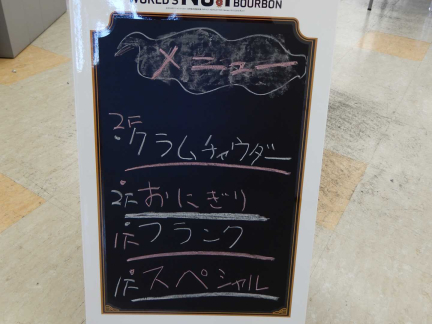 WORLD'S NO.1 BOURBON
メニュー
2F クラムチャウダー
2F おにぎり
1F フランク
1F スペシャル